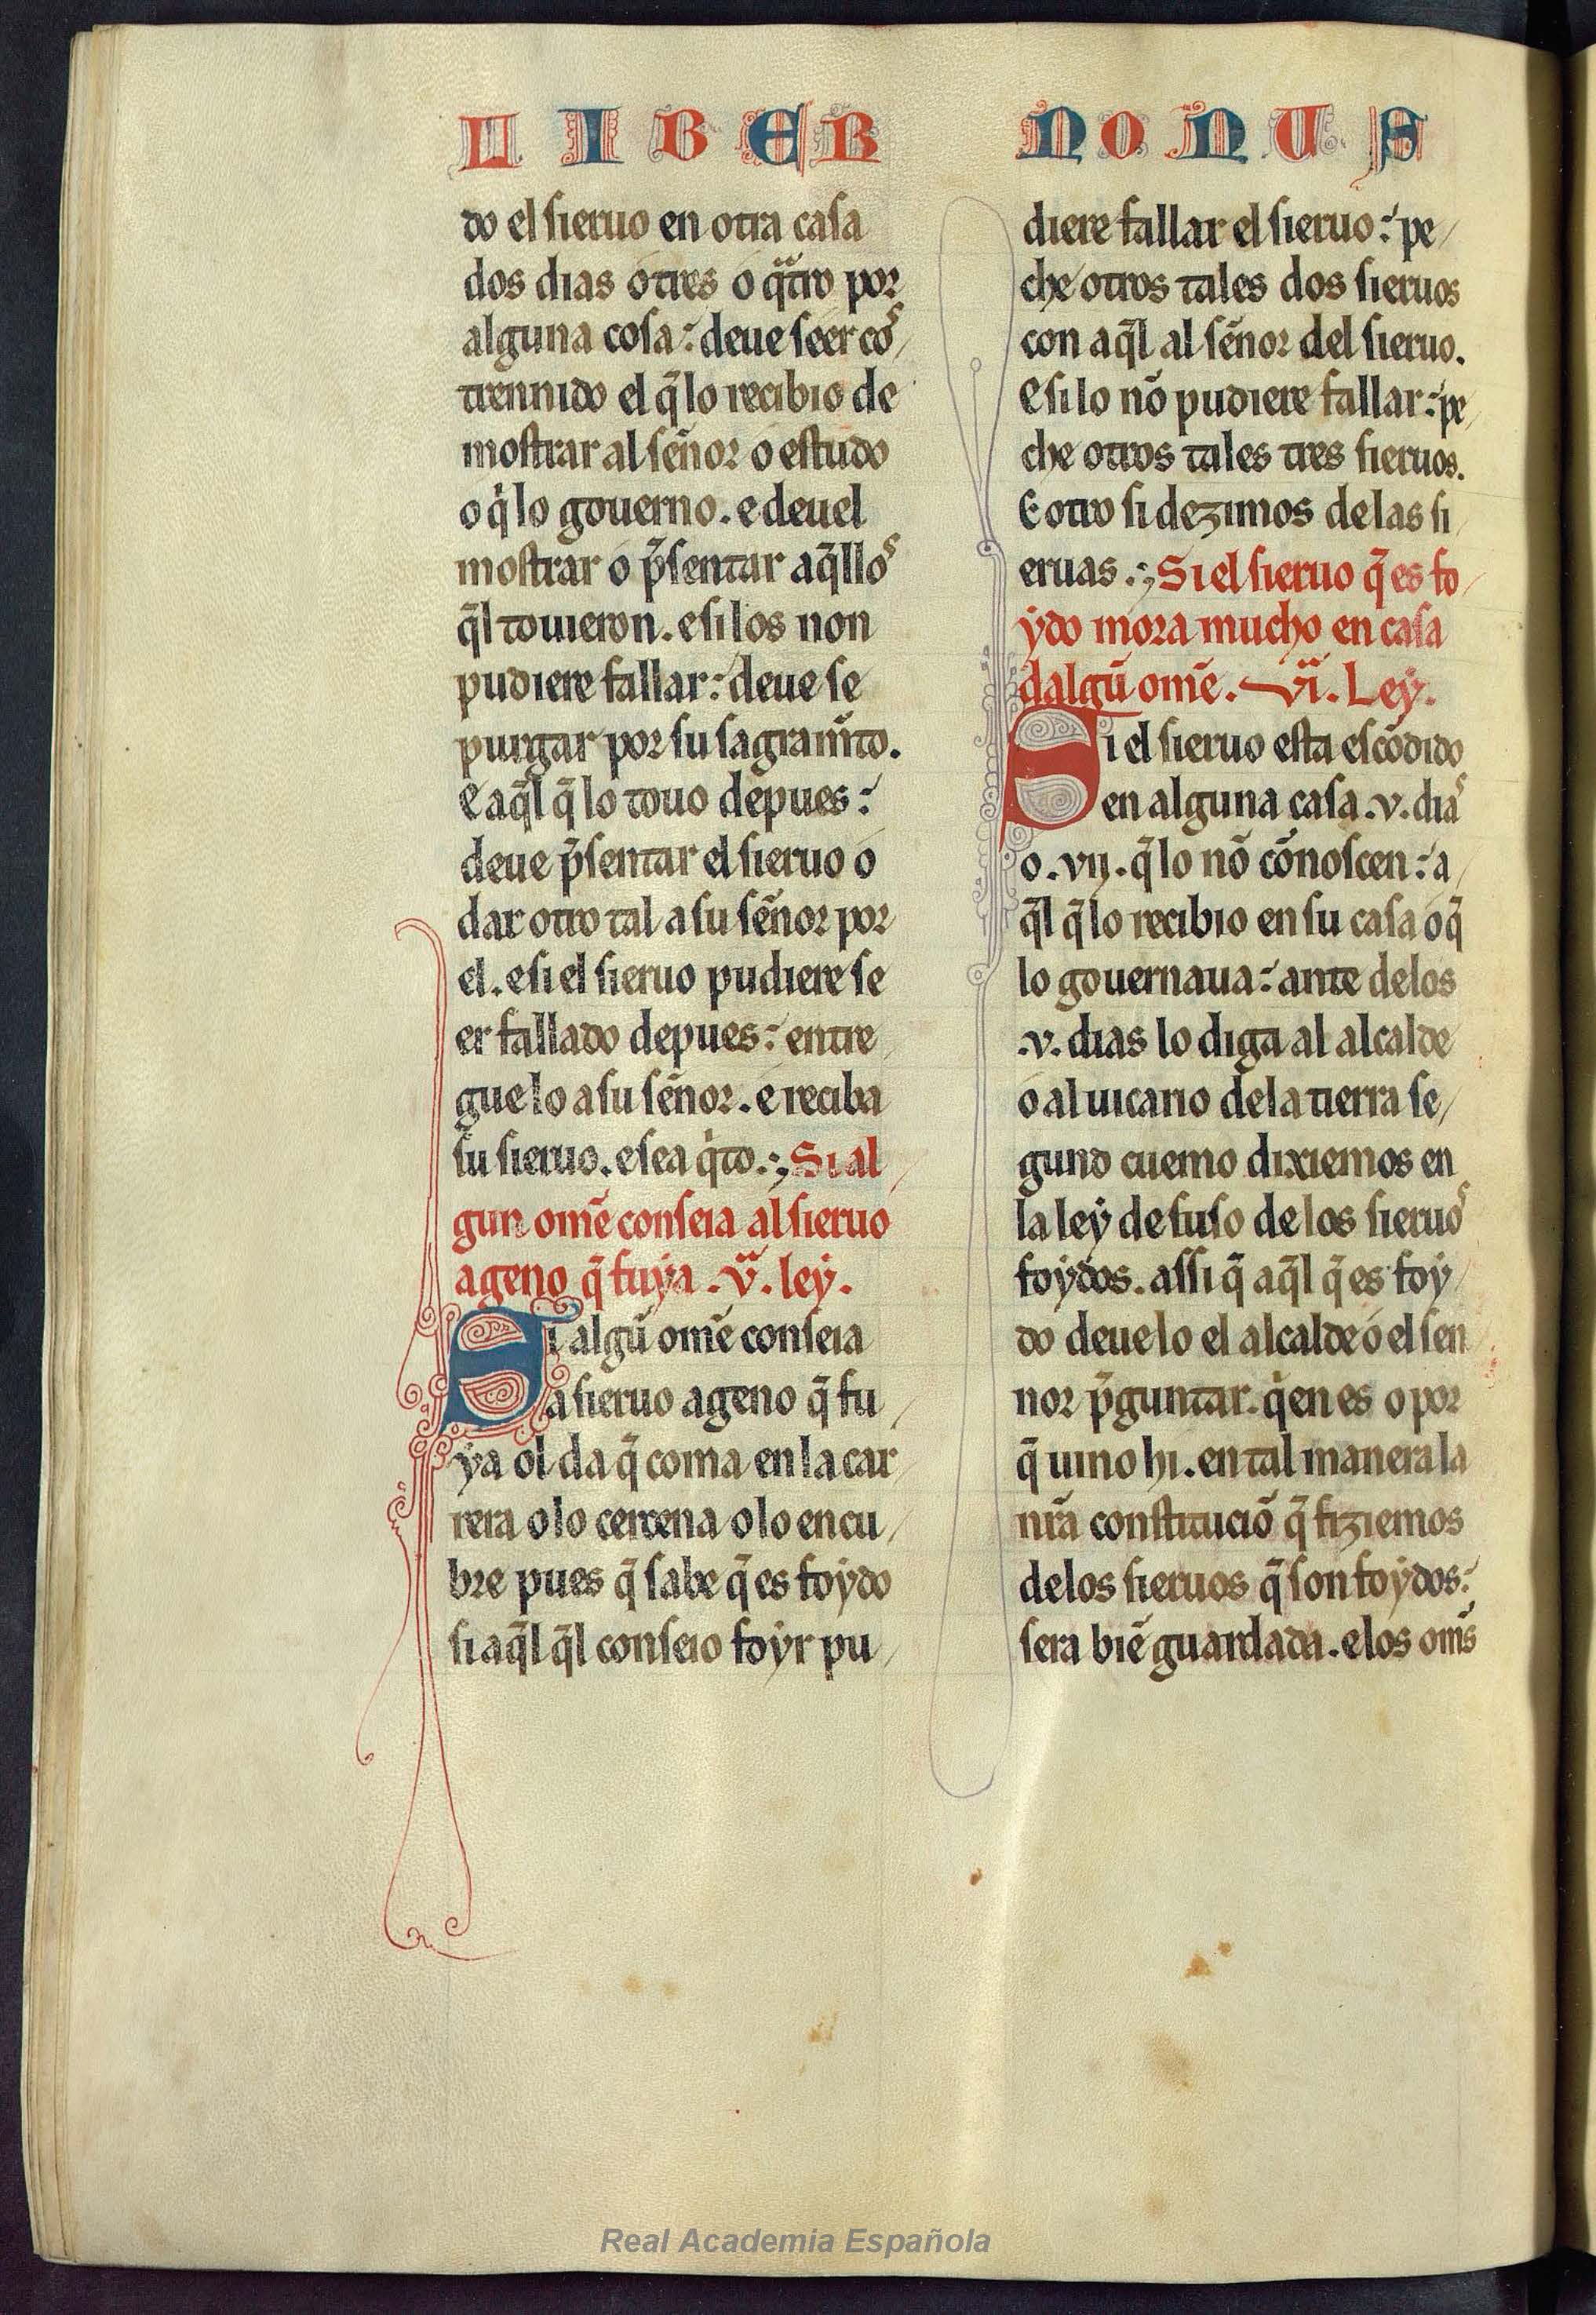 LIBER NONUS
do el sieruo en otra casa
dos dias o tres o q̃tro por
alguna cosa: deue seer cõs/
trennido el q̃ lo recibio de
mostrar al sẽnor o estudo
o qⁱ lo gouerno. e deuel
mostrar o p̃sentar aq̃llos
q̃l touieron. e si los non
pudiere fallar: deue se
purgar por su sagramẽto.
E aq̃l q̃ lo touo depues:
deue p̃sentar el sieruo o
dar otro tal a su sẽnor por
el. e si el sieruo pudiere se
er fallado depues: entre/
gue lo a su sẽnor. e reciba
su sieruo. e sea qⁱto.; Si al/
gun om̃e conseia al sieruo
ageno q̃ fuẏa .v.ª leẏ.
Si algũ om̃e conseia
a sieruo ageno q̃ fu/
ẏa ol da q̃ coma en la car/
rera o lo cercena o lo encu/
bre pues q̃ sabe q̃ es foẏdo
si aq̃l q̃l conseio foẏr pu/
diere fallar el sieruo: pe/
che otros tales dos sieruos
con aq̃l al sẽnor del sieruo.
E si lo nõ pudiere fallar: pe/
che otros tales tres sieruos.
E otro si dezimos de las si/
eruas.; Si el sieruo q̃ es fo/
ẏdo mora mucho en casa
dalgũ om̃e. vi.ª Leẏ.
Si el sieruo esta escõdido
en alguna casa .v. dias
o .vij. q̃ lo nõ cõnoscen: a/
q̃l q̃ lo recibio en su casa o q̃
lo gouernaua: ante de los
.v. dias lo diga al alcalde
o al uicario de la tierra se/
gund cuemo dixiemos en
la leẏ de suso de los sieruos
foẏdos. assi q̃ aq̃l q̃ es foẏ/
do deue lo el alcalde o el sen
nor p̃guntar. qⁱen es o por
q̃ uino hi. en tal manera la
nr̃a constituciõ q̃ fiziemos
de los sieruos q̃ son foẏdos:
sera biẽ guardada. e los om̃s
Real Academia Española